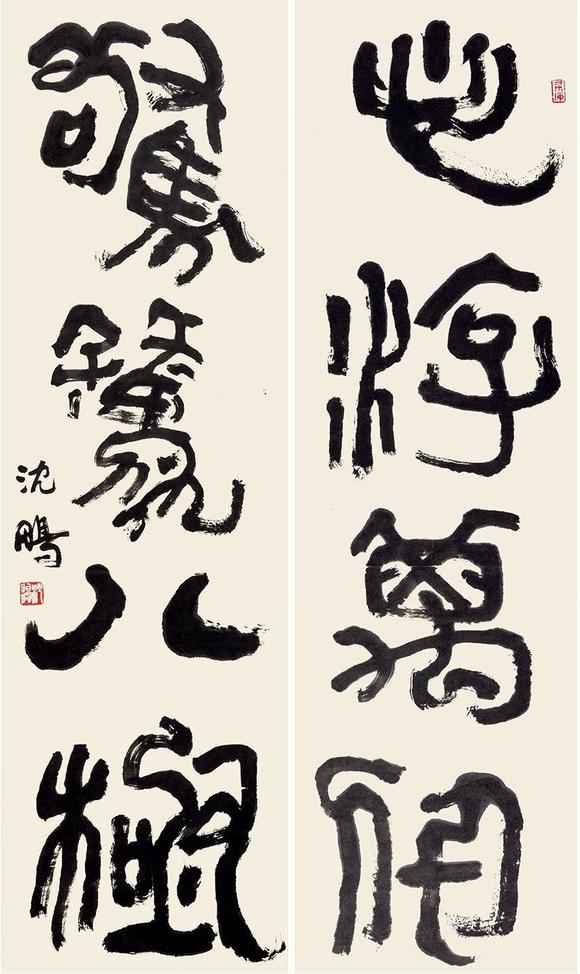 心游萬仞
驚騖八極
沈鵬